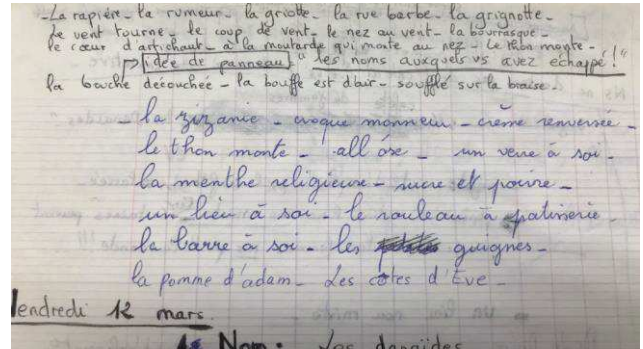 - La rapière - la rumeur - la griotte - la rue barbe - la grignotte -
Le vent tourne - le coup de vent - le nez au vent - la bourrasque -
le cœur d'artichaut - à la moutarde qui monte au nez - Le thon monte -
idée de panneau : "les noms auxquels vs avez échapé !"
la bouche décousue - la bouffe est d'air - soufflé sur la braise -
- la zizanie - croque monneur - crème renversée -
le thon monte - all'ose - un verre à soi -
la menthe religieuse - sucre et poivre -
un lieu à soi - le rouleau à patinerie -
la barre à soi - les guignes -
la pomme d'adam - Les côtes d'Eve -
Vendredi 12 mars.
Nom : Les danaïdes